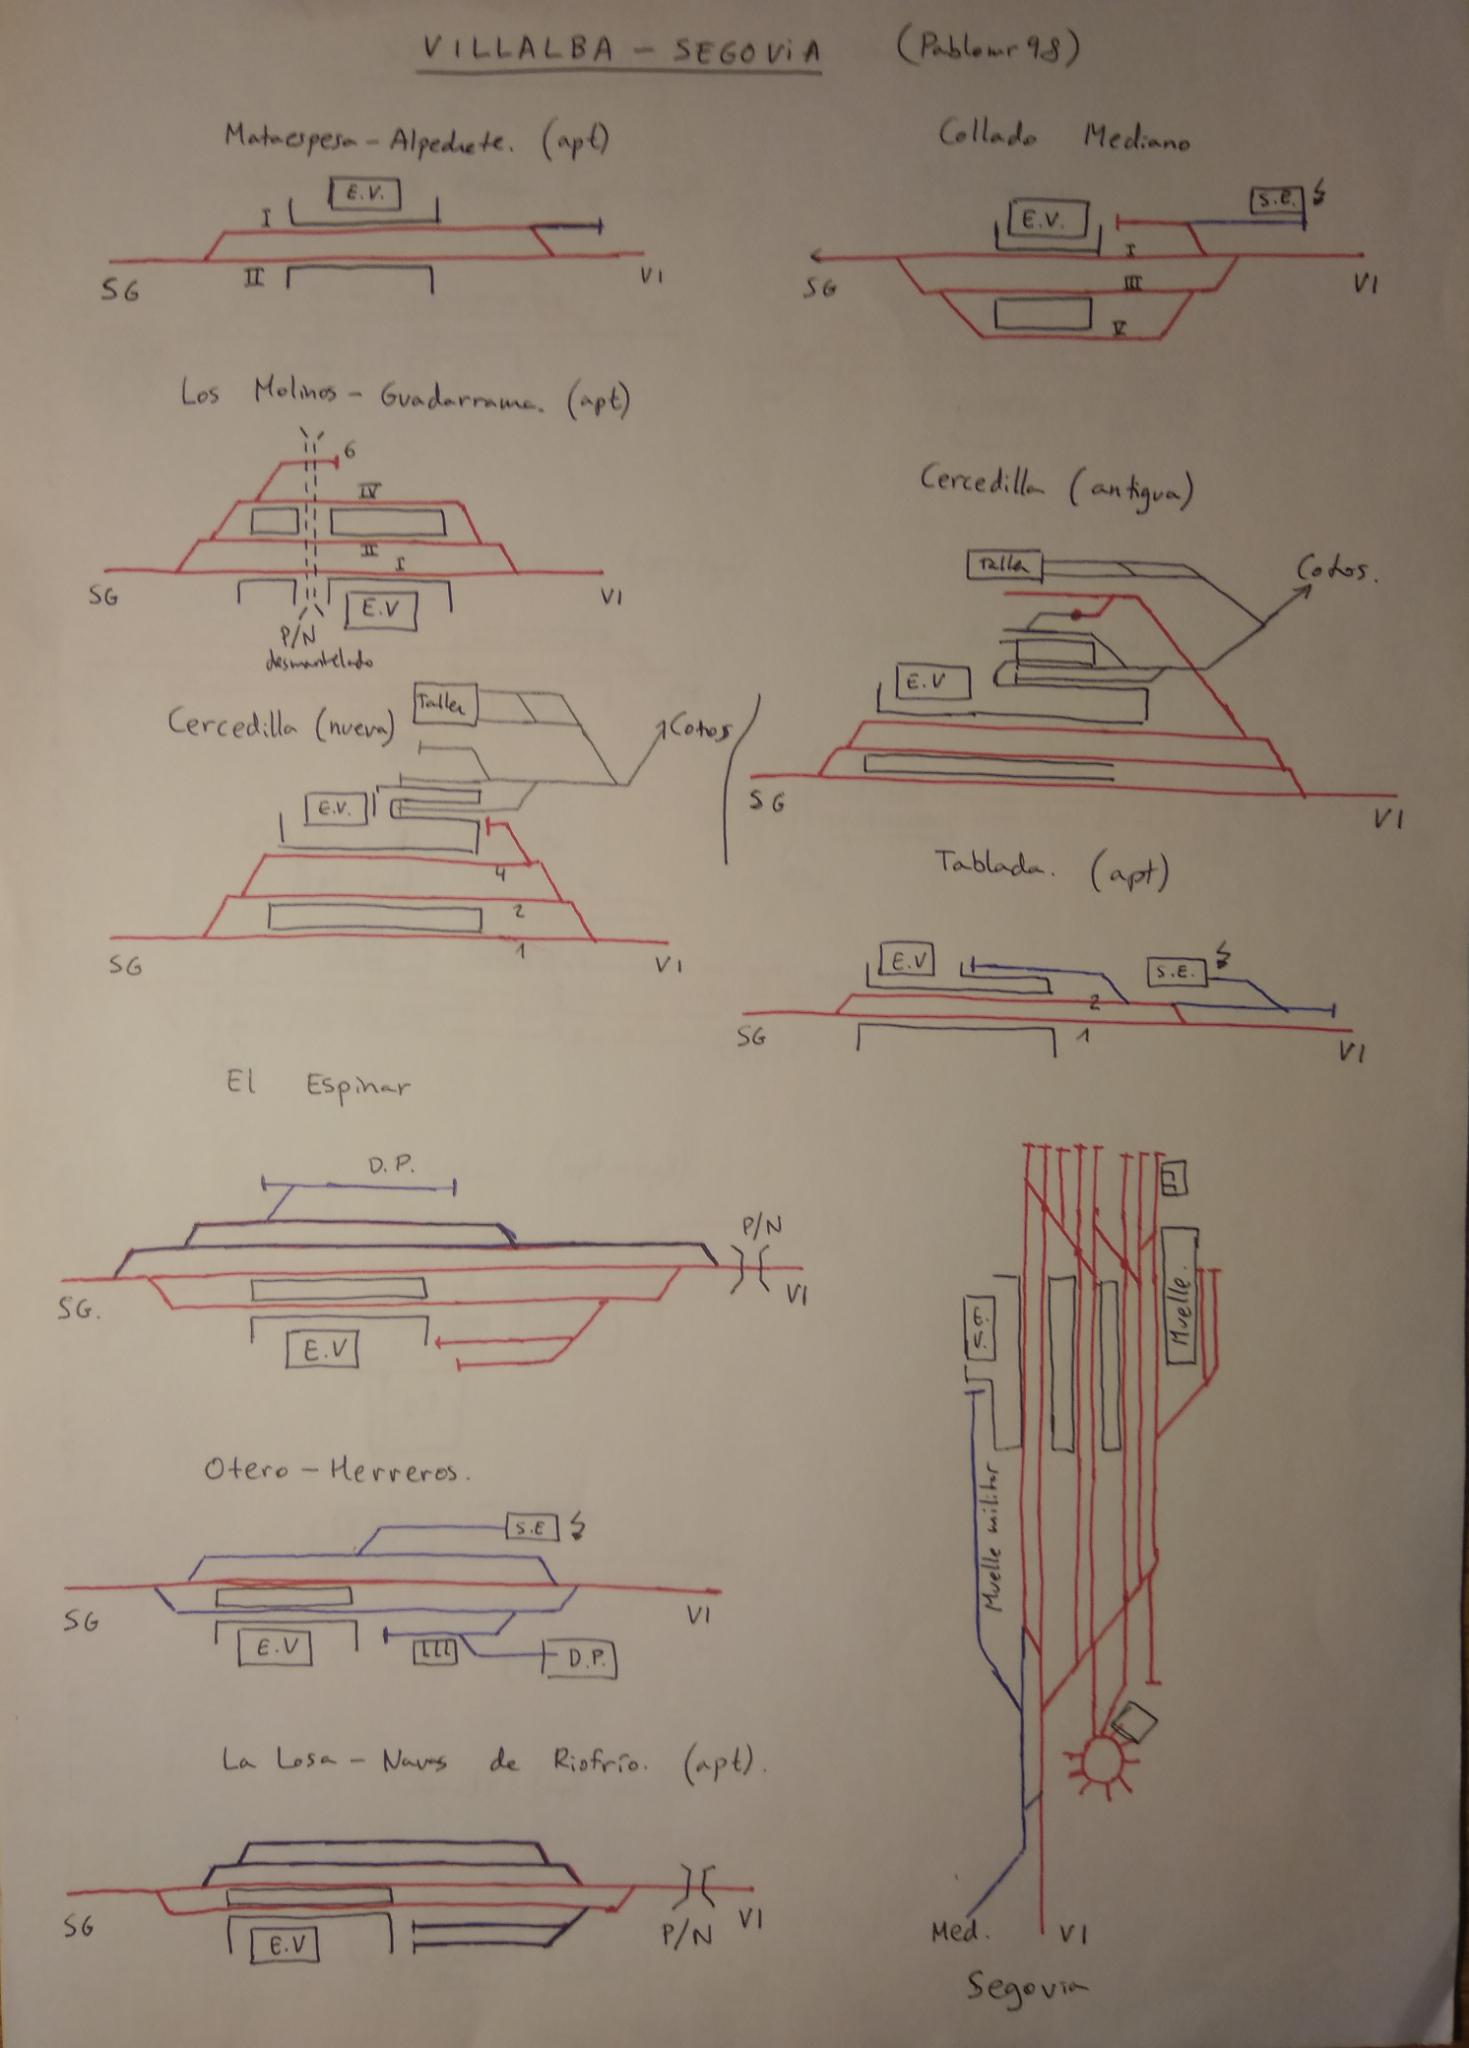 VILLALBA - SEGOVIA (Pablomr98)
Mataespesa - Alpedrete. (apt)
E.V.
I
II
SG
VI
Collado Mediano
E.V.
S.E.
I
III
V
SG
VI
Los Molinos - Guadarrama. (apt)
6
IV
II
I
SG
VI
E.V
P/N
desmantelado
Cercedilla (antigua)
Taller
Cotos.
E.V
SG
VI
Cercedilla (nueva)
Taller
Cotos
E.V.
4
2
1
SG
VI
Tablada. (apt)
E.V
S.E.
2
1
SG
VI
El Espinar
D.P.
P/N
SG.
VI
E.V
Otero - Herreros.
S.E
SG
VI
E.V
D.P.
La Losa - Navas de Riofrío. (apt).
SG
VI
E.V
P/N
Muelle.
Muelle militar
Med.
VI
Segovia